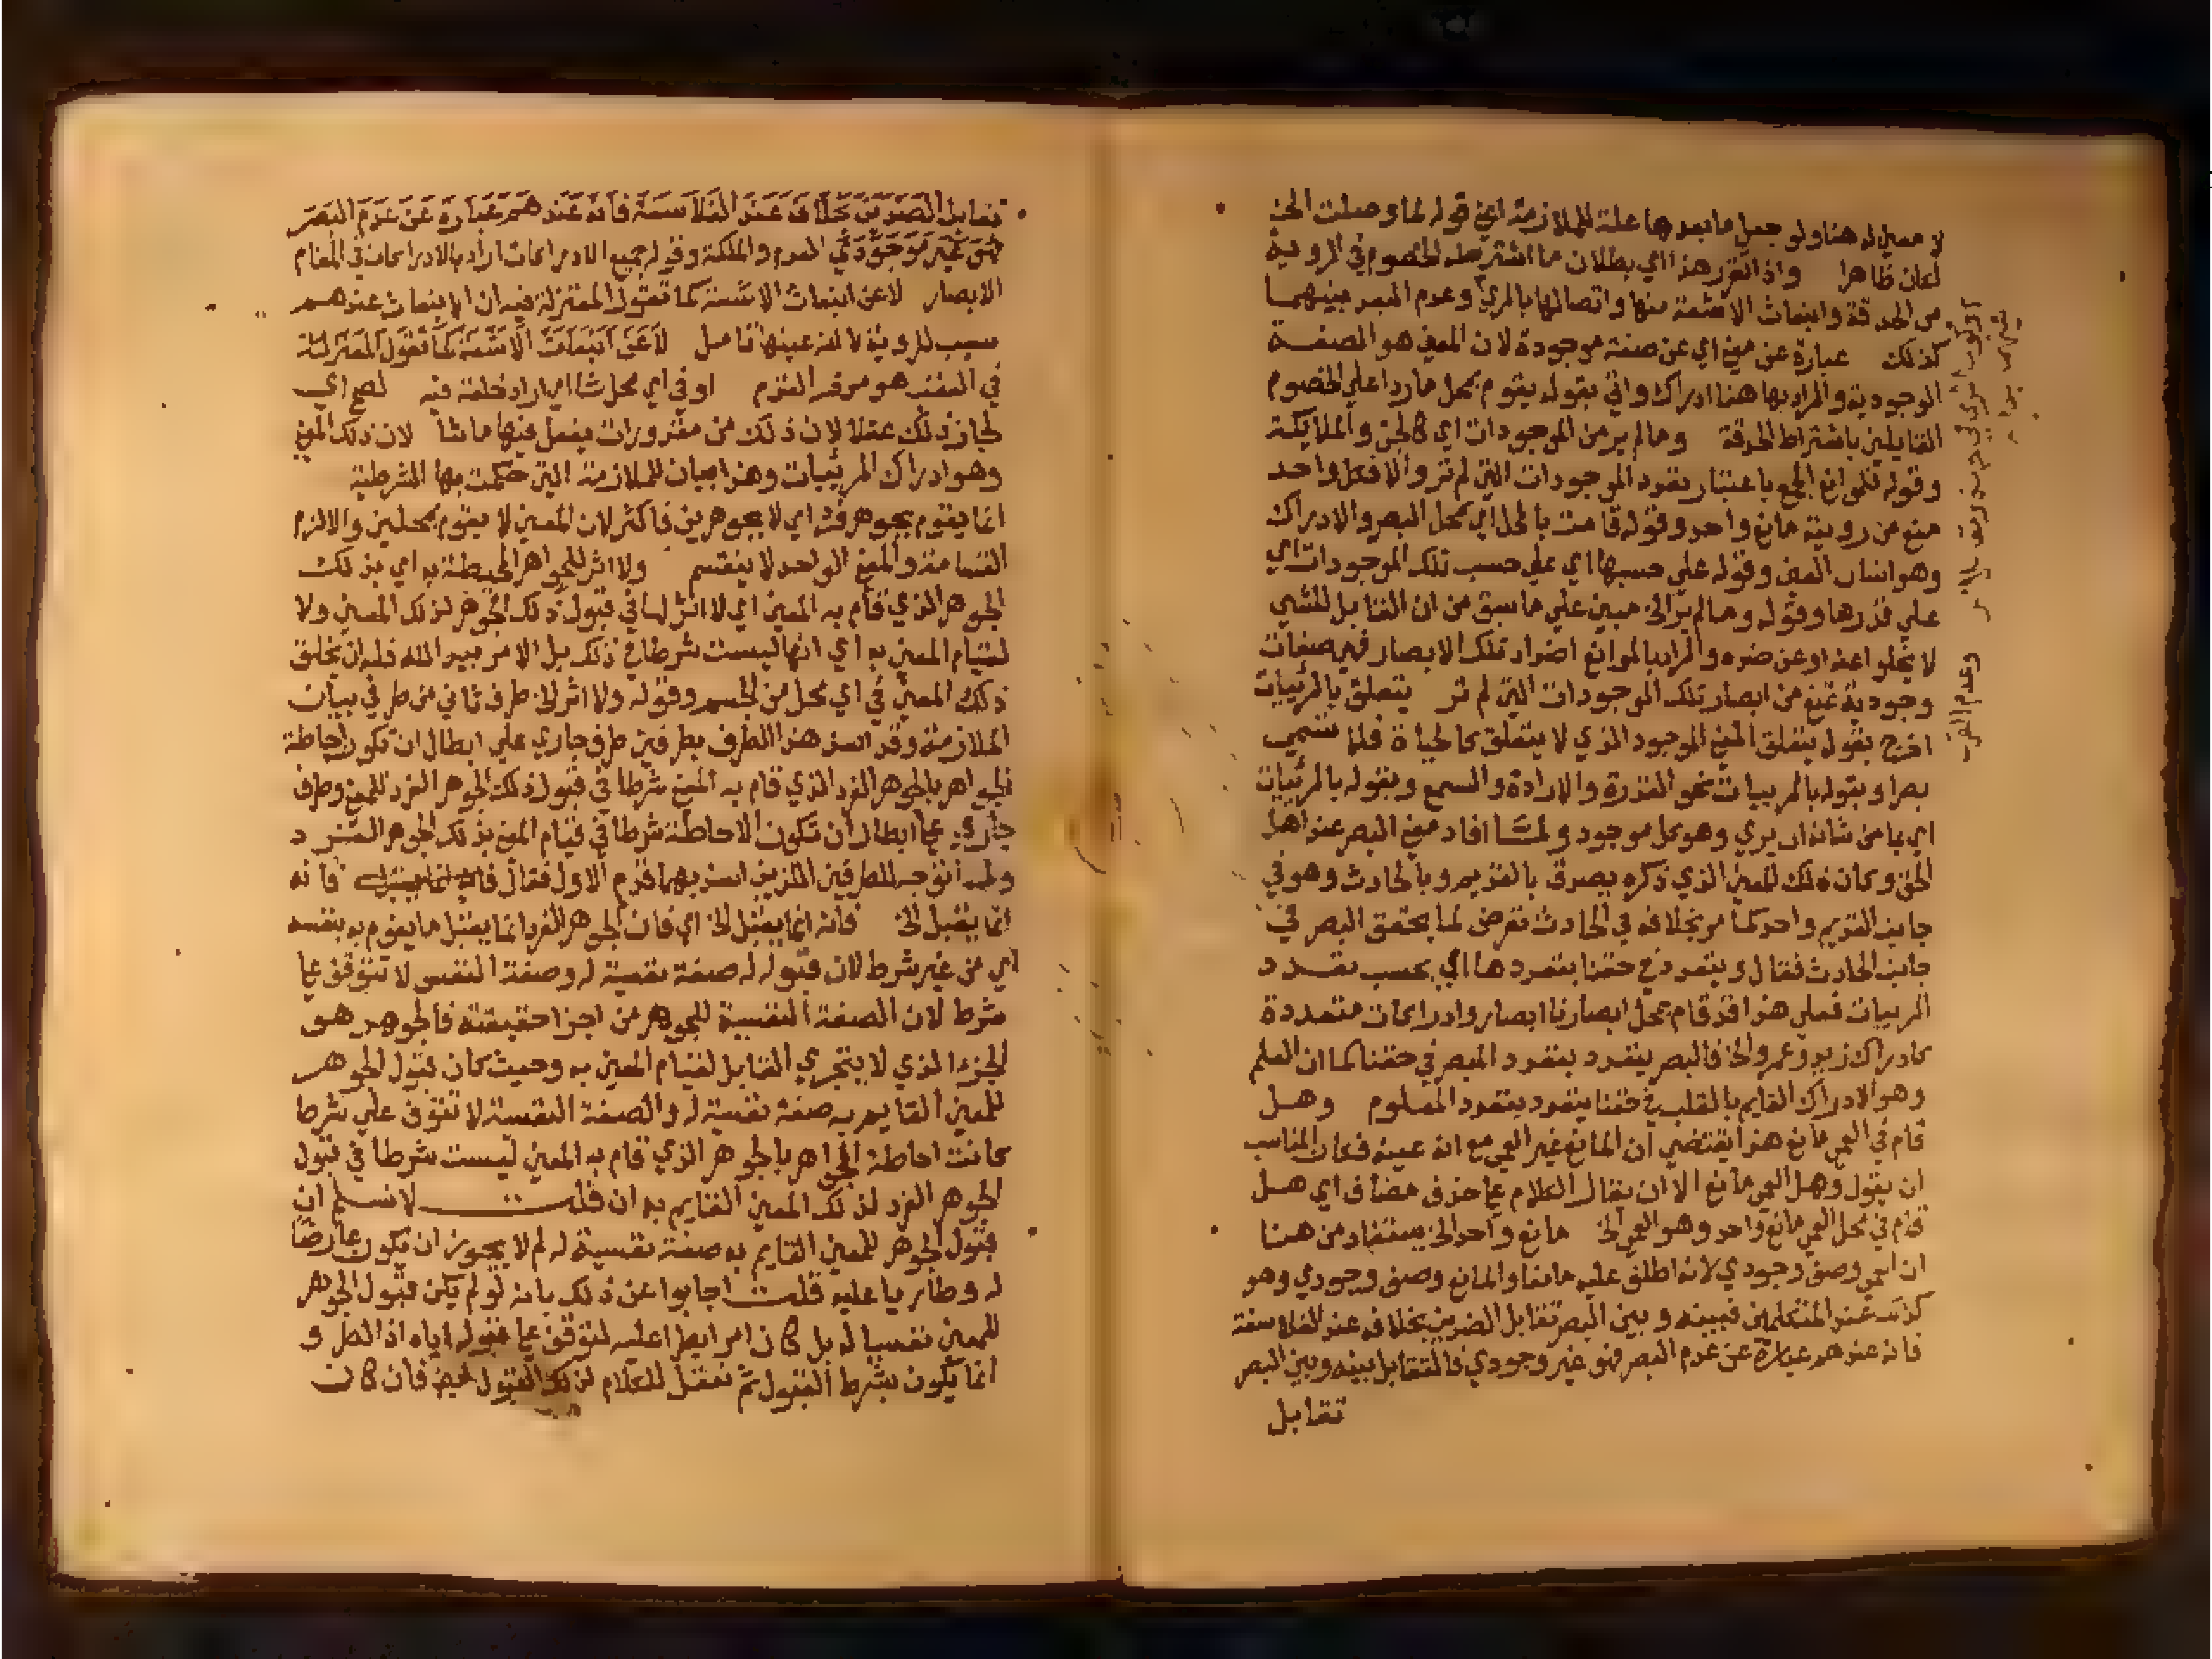 لا معني له هنا ولو جعل ما بعدها علة للملازمة اعني قوله لما وصلت الخ
لكان ظاهرا واذا تقرر هذا اي بطلان ما اشترطه الخصوم في الروية
من الحدقة وانبعاث الاشعة منها واتصالها بالمرئ وعدم البعد بينهما
كذلك عبارة عن معني اي عن صفة موجودة لان المعني هو الصفة
الوجودية والمراد بها هنا ادراك واتي بقوله يقوم بمحل ما ردا علي الخصوم
القايلين باشتراط الحدقة وما لم ير من الموجودات اي كالجن والملايكة
وقوله فلموانع الجمع باعتبار تعدد الموجودات التي لم تر والا فكل واحد
منع من روية مانع واحد وقوله قامت بالمحل اي محل البصر والادراك
وهو انسان العين وقوله علي حسبها اي علي حسب تلك الموجودات اي
علي قدرها وقوله وما لم ير الخ مبين علي ما سبق من ان القابل للشي
لا يخلوا عنه او عن ضده والمراد بالموانع اضداد تلك الابصار فهي صفات
وجودية تمنع من ابصار تلك الموجودات التي لم تر يتعلق بالمرئيات
اخرج بقوله يتعلق المعني الموجود الذي لا يتعلق كالحياة فلا تسمي
بصرا وبقوله بالمرييات نحو القدرة والارادة والسمع وبقوله بالمرئيات
اي بما من شانه ان يري وهو كل موجود ولما افاد معني البصر عند اهل
الحق وكان ذلك المعني الذي ذكره يصدق بالقديم وبالحادث وهو في
جانب القديم واحد كما مر بخلافه في الحادث تعرض لما يحقق البصر في
جانب الحادث فقال ويتعدد في حقنا بتعددها اي بحسب تعدد
المرييات فعلي هذا قد قام بمحل ابصارنا ابصار وادراكات متعددة
كادراك زيد وعمرو الخ فالبصر يتعدد بتعدد المبصر في حقنا كما ان العلم
وهو الادراك القايم بالقلب في حقنا يتعدد بتعدد المعلوم وهل
قام في العمي مانع هذا يقتضي ان المانع غير العمي مع انه عينه فكان المناسب
ان يقول وهل العمي مانع الا ان يقال الكلام علي حذف مضاف اي هل
قام في محل العمي مانع واحد وهو العمي الخ مانع واحد الخ يستفاد من هنا
ان العمي وصف وجودي لانه اطلق عليه مانعا والمانع وصف وجودي وهو
كذلك عند المتكلمين فبينه وبين البصر تقابل الضدين بخلافه عند الفلاسفة
فانه عندهم عبارة عن عدم البصر فهو غير وجودي فالتقابل بينه وبين البصر
تقابل
وعدم القرب
تقابل الضدين بخلاف عند الفلاسفة فانه عندهم عبارة عن عدم البصر
فهو غير موجودي العدم والملكة وقوله جميع الادراكات اراد بالادراكات في المقام
الابصار لا عن انبعاث الاشعة كما تقول المعتزلة فيه ان الانبعاث عندهم
سبب للروية لا انه عينها تامل لا عن انبعاث الاشعة كما تقول المعتزلة
في العقد هو مؤخر القدم او في اي محل شا اي اراد خلقه فيه لصح اي
لجاز ذلك عقلا لان ذلك من مقدورات يفعل فيها ما شا لان ذلك المعني
وهو ادراك المرئيات وهذا بيان للملازمة التي حكمت بها الشرطية
انما يقوم بجوهر فرد اي لا بجوهرين فاكثر لان المعني لا يقوم بمحلين والا لزم
انقسامه والمعني الواحد لا ينقسم ولا اثر للجواهر المحيطة به اي بذلك
الجوهر الذي قام به المعني اي لا اثر لها في قبول ذلك الجوهر لذلك المعني ولا
لقيام المعني به اي انها ليست شرطا في ذلك بل الامر بيد الله فله ان يخلق
ذلك المعني في اي محل من الجسم وقوله ولا اثر الخ طرف ثاني من طرفي بيان
الملازمة وقد اسند هذا الطرف بطرفين طرف جاري علي ابطال ان تكون احاطة
الجواهر بالجوهر الفرد الذي قام به المعني شرطا في قبول ذلك الجوهر الفرد للمعني وطرف
جاري علي ابطال ان تكون الاحاطة شرطا في قيام المعني بذلك الجوهر الفرد
الطرفين اللذين اسند بهما قدم الاول فقال فانه
انما يقبل الخ فانه انما يقبل الخ اي فان الجوهر الفرد انما يقبل ما يقوم به بنفسه
اي من غير شرط لان قبوله له صفة نفسية له وصفة النفس لا تتوقف علي
شرط لان الصفة النفسية للجوهر من اجزا حقيقته فالجوهر هو
الجزء الذي لا يتجزي القابل لقيام المعني به وحيث كان قبول الجوهر
للمعني القايم به صفة نفسية له والصفة النفسية لا تتوقف علي شرط
كانت احاطة الجواهر بالجوهر الذي قام به المعني ليست شرطا في قبول
الجوهر الفرد لذلك المعني القايم به ان قلت لا نسلم ان
قبول الجوهر للمعني القايم به صفة نفسية له لم لا يجوز ان يكون عارضا
له وطاريا عليه قلت اجابوا عن ذلك بانه لو لم يكن قبول الجوهر
للمعني نفسيا له بل كان امرا طرا عليه لتوقف علي قبوله اياه اذ الطرو
انما يكون بشرط القبول ثم ننقل الكلام لذلك القبول فان كان